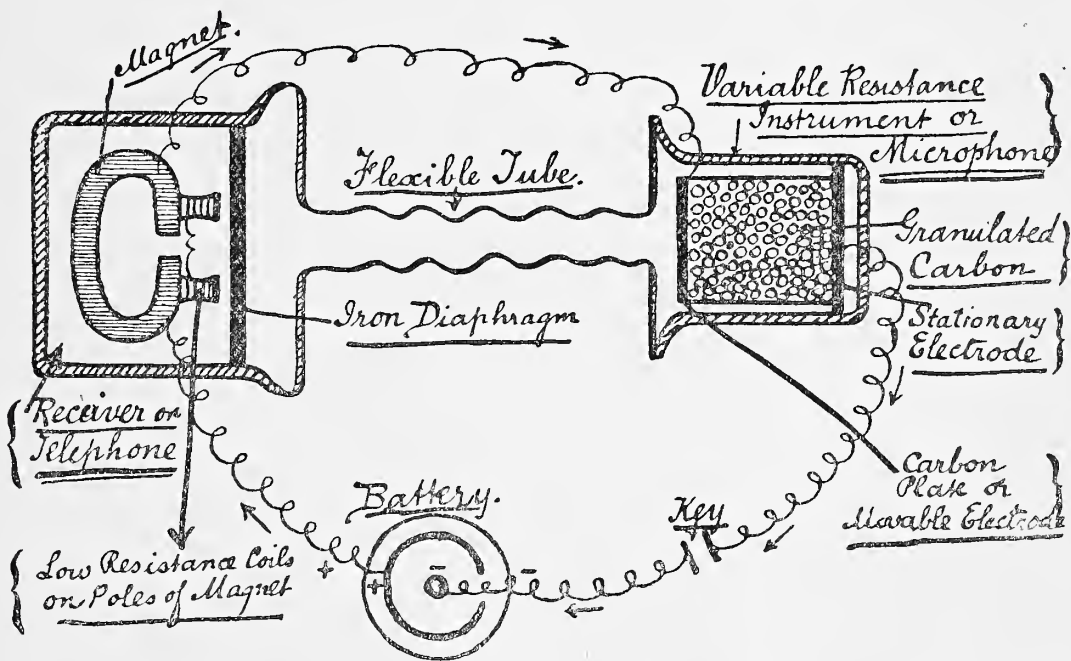 Magnet.
Variable Resistance
Instrument or
Microphone
Flexible Tube.
Granulated
Carbon
Iron Diaphragm
Stationary
Electrode
Receiver or
Telephone
Carbon
Plate or
Movable Electrode
Battery.
Key
Low Resistance Coils
on Poles of Magnet
+
+
-
-